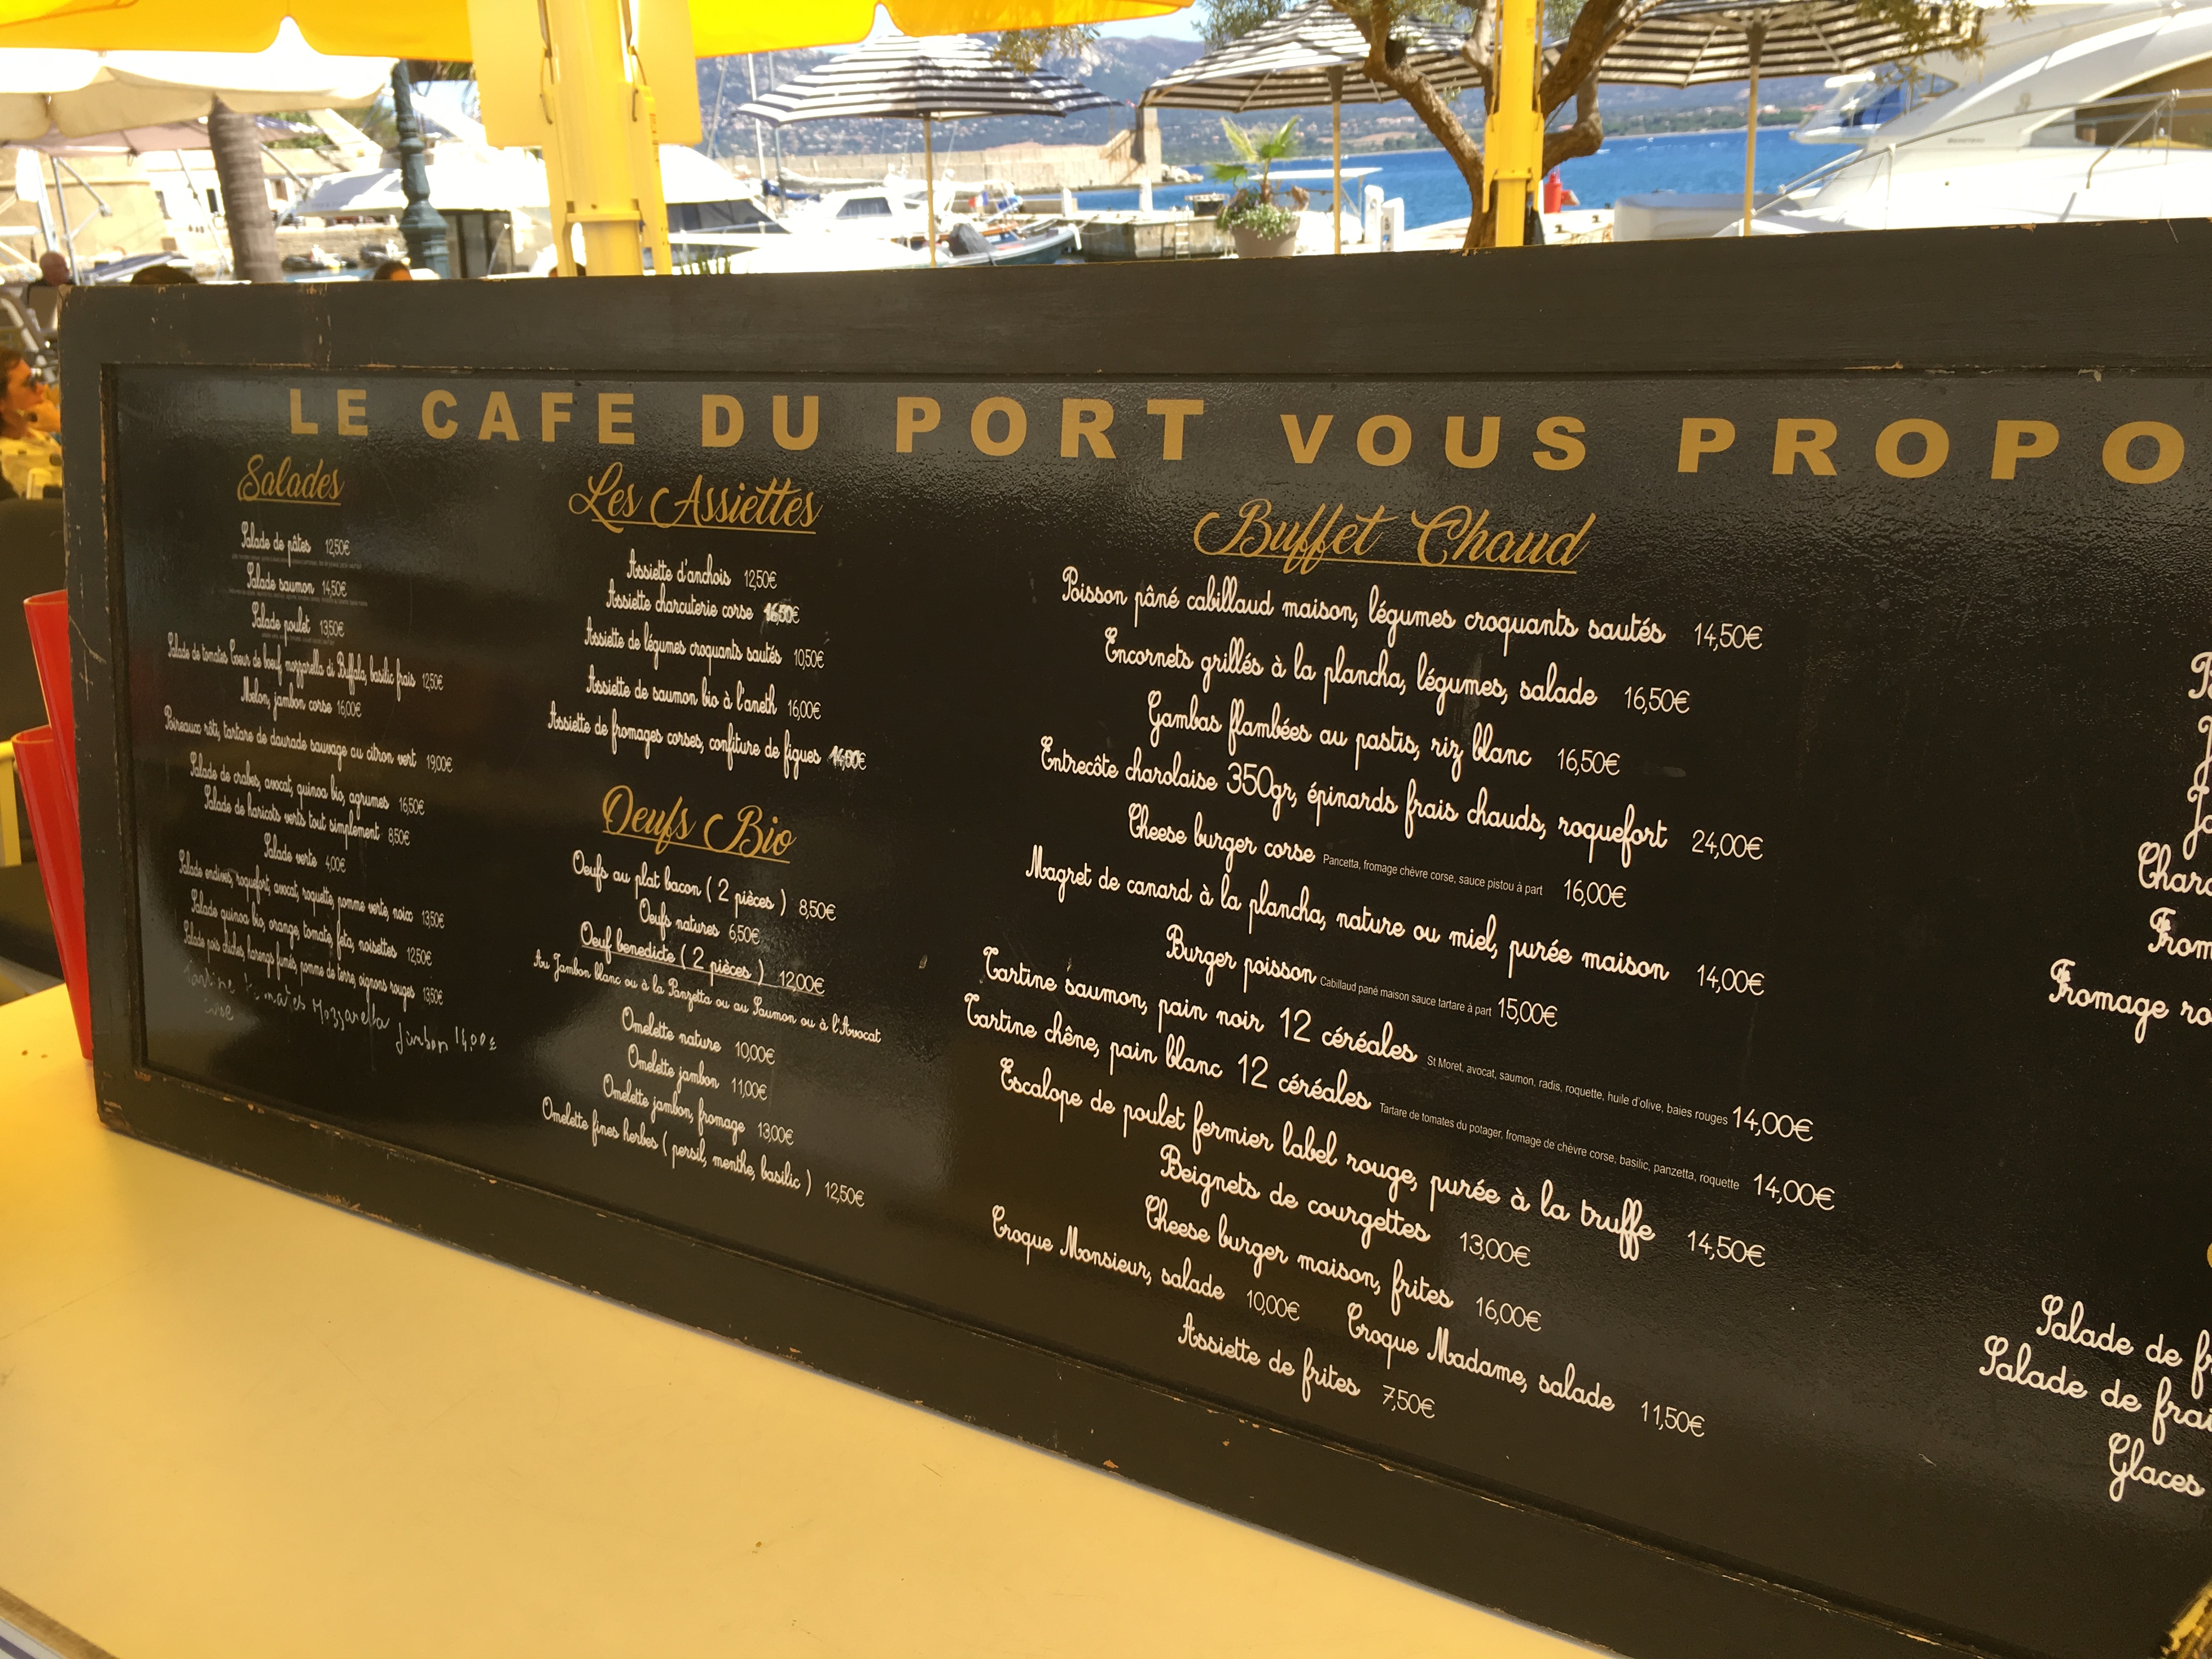 LE CAFE DU PORT VOUS PROPO
Salades
Salade de pâtes 12,50€
Salade saumon 14,50€
Salade poulet 13,50€
Salade de tomates Coeur de boeuf mozzarella di Buffala, basilic frais 12,50€
Melon, jambon corse 16,00€
Poireaux rôti, tartare de daurade sauvage au citron vert 19,00€
Salade de crabes, avocat, quinoa bio, agrumes 16,50€
Salade de haricots verts tout simplement 8,50€
Salade verte 4,00€
Salade endives, roquefort, avocat, roquette, pomme verte, noix 13,50€
Salade quinoa bio, orange, tomate, feta, noisettes 12,50€
Salade pois chiches, harengs fumés, pomme de terre, oignons rouges 13,50€
Tartine Tomates Mozzarella Jambon 14,00€
Les Assiettes
Assiette d'anchois 12,50€
Assiette charcuterie corse 16,50€
Assiette de légumes croquants sautés 10,50€
Assiette de saumon bio à l'aneth 16,00€
Assiette de fromages corses, confiture de figues
Oeufs Bio
Oeufs au plat bacon ( 2 pièces ) 8,50€
Oeufs natures 6,50€
Oeuf benedicte ( 2 pièces ) 12,00€
Au Jambon blanc ou à la Panzetta ou au Saumon ou à l'Avocat
Omelette nature 10,00€
Omelette jambon 11,00€
Omelette jambon, fromage 13,00€
Omelette fines herbes ( persil, menthe, basilic ) 12,50€
Buffet Chaud
Poisson pâné cabillaud maison, légumes croquants sautés 14,50€
Encornets grillés à la plancha, légumes, salade 16,50€
Gambas flambées au pastis, riz blanc 16,50€
Entrecôte charolaise 350gr, épinards frais chauds, roquefort 24,00€
Cheese burger corse Pancetta, fromage chèvre corse, sauce pistou à part 16,00€
Magret de canard à la plancha, nature ou miel, purée maison 14,00€
Burger poisson Cabillaud pané maison sauce tartare à part 15,00€
Tartine saumon, pain noir 12 céréales St Moret, avocat, saumon, radis, roquette, huile d'olive, baies rouges 14,00€
Tartine chêne, pain blanc 12 céréales Tartare de tomates du potager, fromage de chèvre corse, basilic, panzetta, roquette 14,00€
Escalope de poulet fermier label rouge, purée à la truffe 14,50€
Beignets de courgettes 13,00€
Cheese burger maison, frites 16,00€
Croque Monsieur, salade 10,00€ Croque Madame, salade 11,50€
Assiette de frites 7,50€
Charc
From
Fromage ro
Salade de f
Salade de frai
Glaces